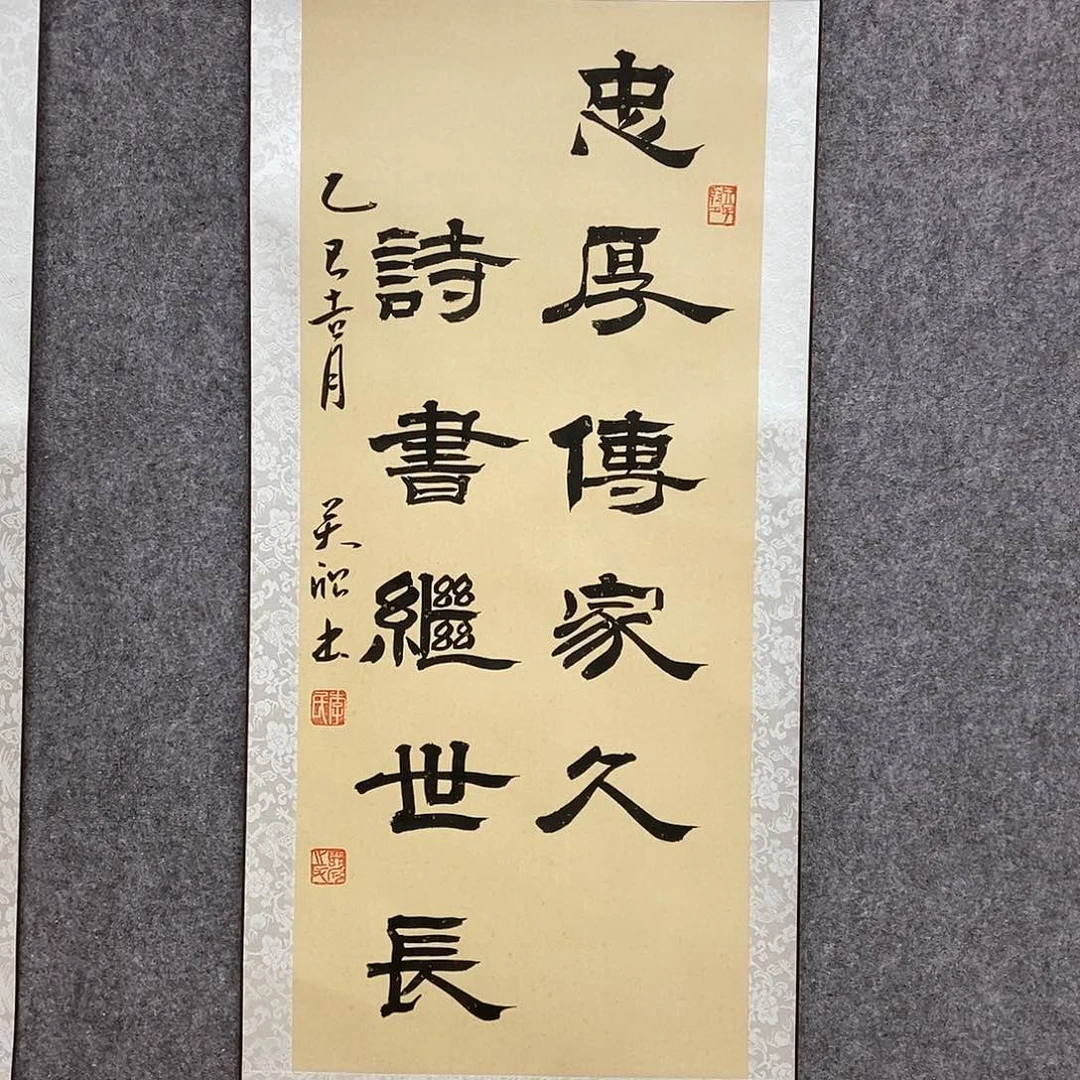 忠厚傳家久
詩書繼世長
乙巳吉月
吴
书